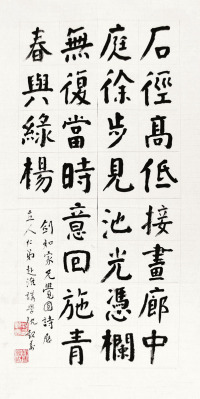 石徑高低接畫廊中
庭徐步見池光憑欄
無復當時意回施青
春與綠楊
劍知家兄覺園詩應
立人仁弟